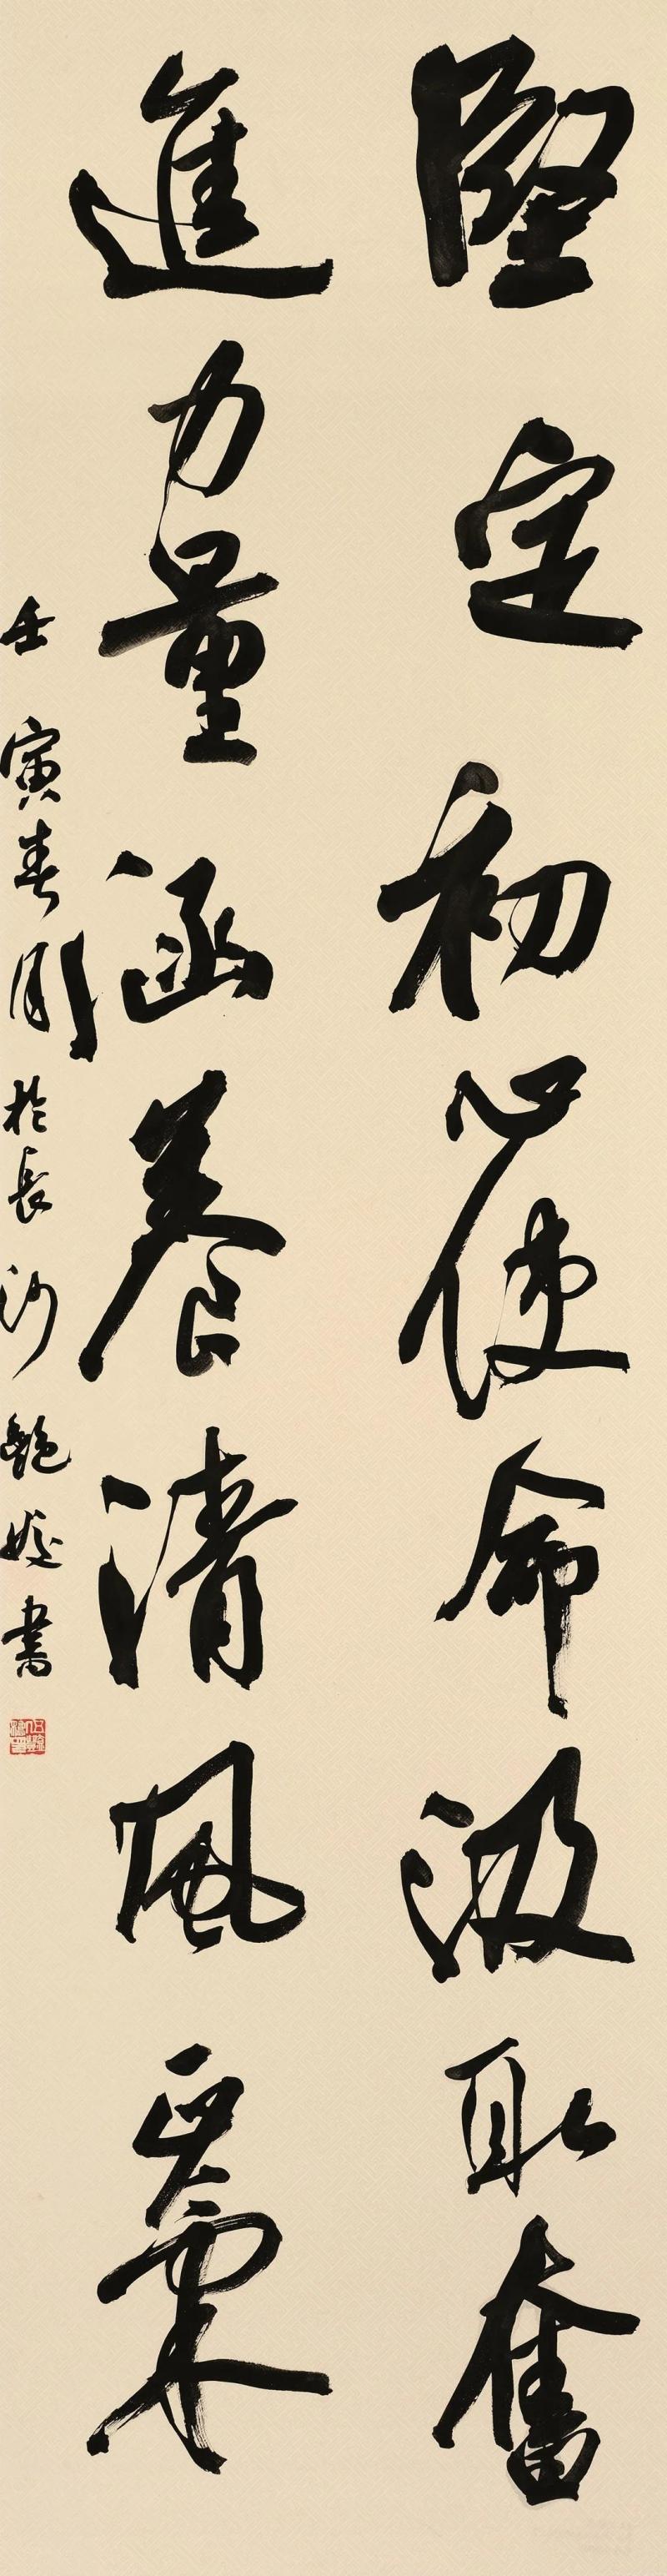 堅定初心使命汲取奮
進力量涵養清風正氣
壬寅春月於長沙艷娫書